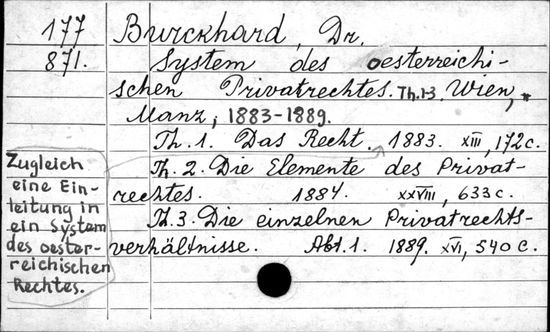 177
871.
Burckhard, Dr.
System des oesterreichi-
schen Privatrechtes. Th.1-3. Wien,
Manz, 1883-1889.
Th. 1. Das Recht. 1883. XIII, 172 c.
Th. 2. Die Elemente des Privat-
rechtes. 1884. XXVIII, 633 c.
Th. 3. Die einzelnen Privatrechts-
verhältnisse. Abt. 1. 1889. XVI, 540 c.
Zugleich
eine Ein-
leitung in
ein System
des oester-
reichischen
Rechtes.